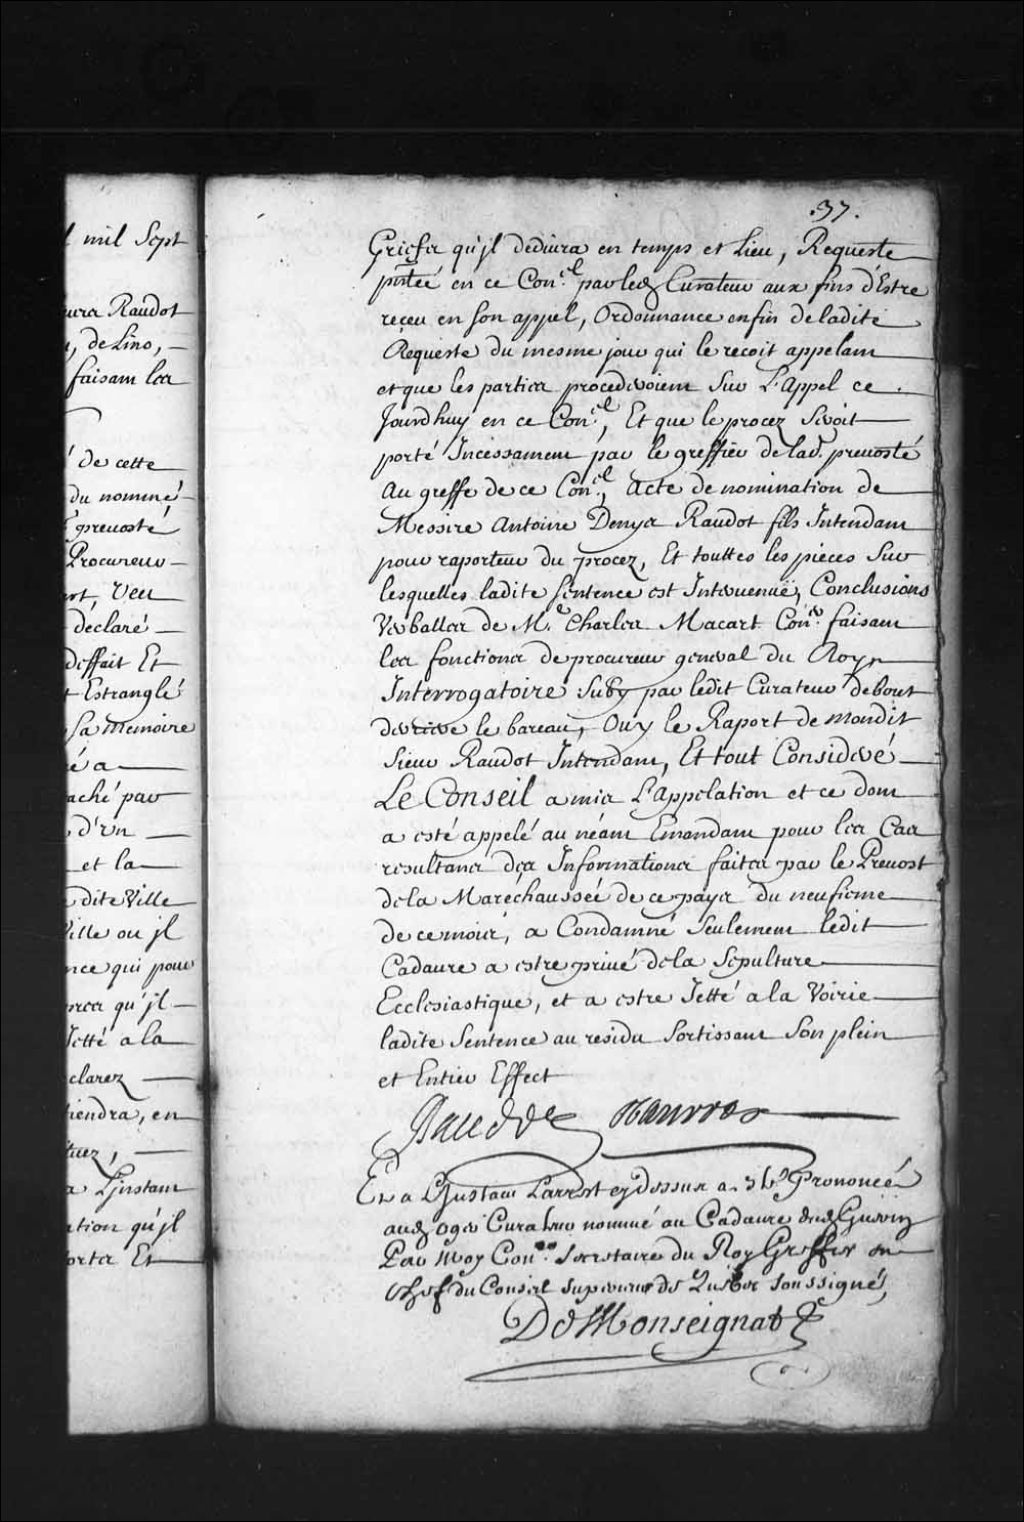 l mil Sept
ura Raudot
, de Lino,
faisam les
de cette
du nommé
prevosté
Procureur
Veu
déclaré
deffait Et
Estranglé
Sa memoire
é a
aché par
d'vn
et la
dite Ville
ville ou jl
nce qui pour
qu'jl
Jetté a la
clarez
tiendra, en
a L'Jnstant
ation qu'jl
Et
.37.
Griefs qu'jl deduira en temps et Lieu, Requeste
pntée en ce Con.el par led Curateur aux fins d'Estre
receu en son appel, Ordonnance enfin de ladite
Requeste du mesme jour qui le recoit appelant
et que les parties procederoient sur L'Appel ce
Jourdhuy en ce Con.el, Et que le procez Seroit
porté Incessament par le greffier de lad. prevosté
Au greffe de ce Con.el, acte de nomination de
Messire Antoine Denys Raudot fils Intendant
pour raporteur du procez, Et touttes les pieces Sur
lesquelles ladite Sentence est Intervenuë, Conclusions
Verballes de M.e Charles Macart Con.er faisant
les fonctions de procureur general du Roy,
Interrogatoire Suby par ledit Curateur debout
derriere le bareau, Ouy le Raport de mondit
Sieur Raudot Intendant, Et tout Consideré
Le Conseil a mis L'appelation et ce dont
a esté appelé au néant Emandant pour les Cas
resultans des Informations faites par le Prevost
de la Maréchaussée de ce pays du neufieme
de ce mois, a Condamné Seulement ledit
Cadavre a estre privé de la Sepulture
Ecclesiastique, et a estre Jetté a la Voirie
ladite Sentence au residu Sortissant Son plein
et Entier Effect
Raudot
Et a L'Jnstant L'arrest cy dessus a Prononcé
aud Curateur nommé au Cadavre dud Guerin
Par Moy Con.er Secretaire du Roy Greffier en
chef du Conseil Superieur de Quebec Soussigné,
De Monseignat